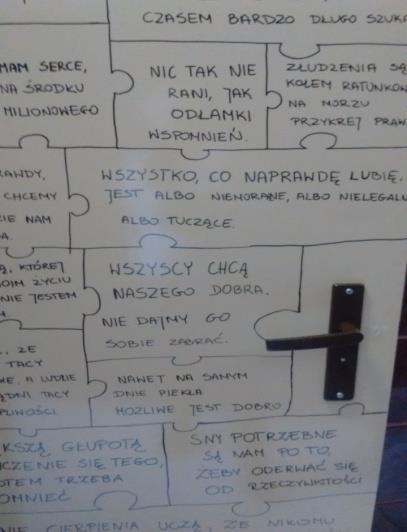 CZASEM BARDZO DŁUGO SZUKA
MAM SERCE,
NA ŚRODKU
MILIONOWEGO
NIC TAK NIE
RANI, JAK
ODŁAMKI
WSPOMNIEŃ.
ZŁUDZENIA SĄ
KOŁEM RATUNKOW
NA MORZU
PRZYKREJ PRAW
CHCEMY
NAM
WSZYSTKO, CO NAPRAWDĘ LUBIĘ,
JEST ALBO NIEMORALNE, ALBO NIELEGALN
ALBO TUCZĄCE.
, KTÓREJ
OIM ŻYCIU
NIE JESTEM
WSZYSCY CHCĄ
NASZEGO DOBRA.
NIE DAJMY GO
SOBIE ZABRAĆ.
ŻE
TACY
A LUDZIE
TACY
NAWET NA SAMYM
DNIE PIEKŁA
MOŻLIWE JEST DOBRO
KSZĄ GŁUPOTĄ
UCZENIE SIĘ TEGO,
POTEM TRZEBA
OMNIEĆ
SNY POTRZEBNE
SĄ NAM PO TO,
ŻEBY ODERWAĆ SIĘ
OD RZECZYWISTOŚCI
CIERPIENIA UCZĄ, ŻE NIKOMU